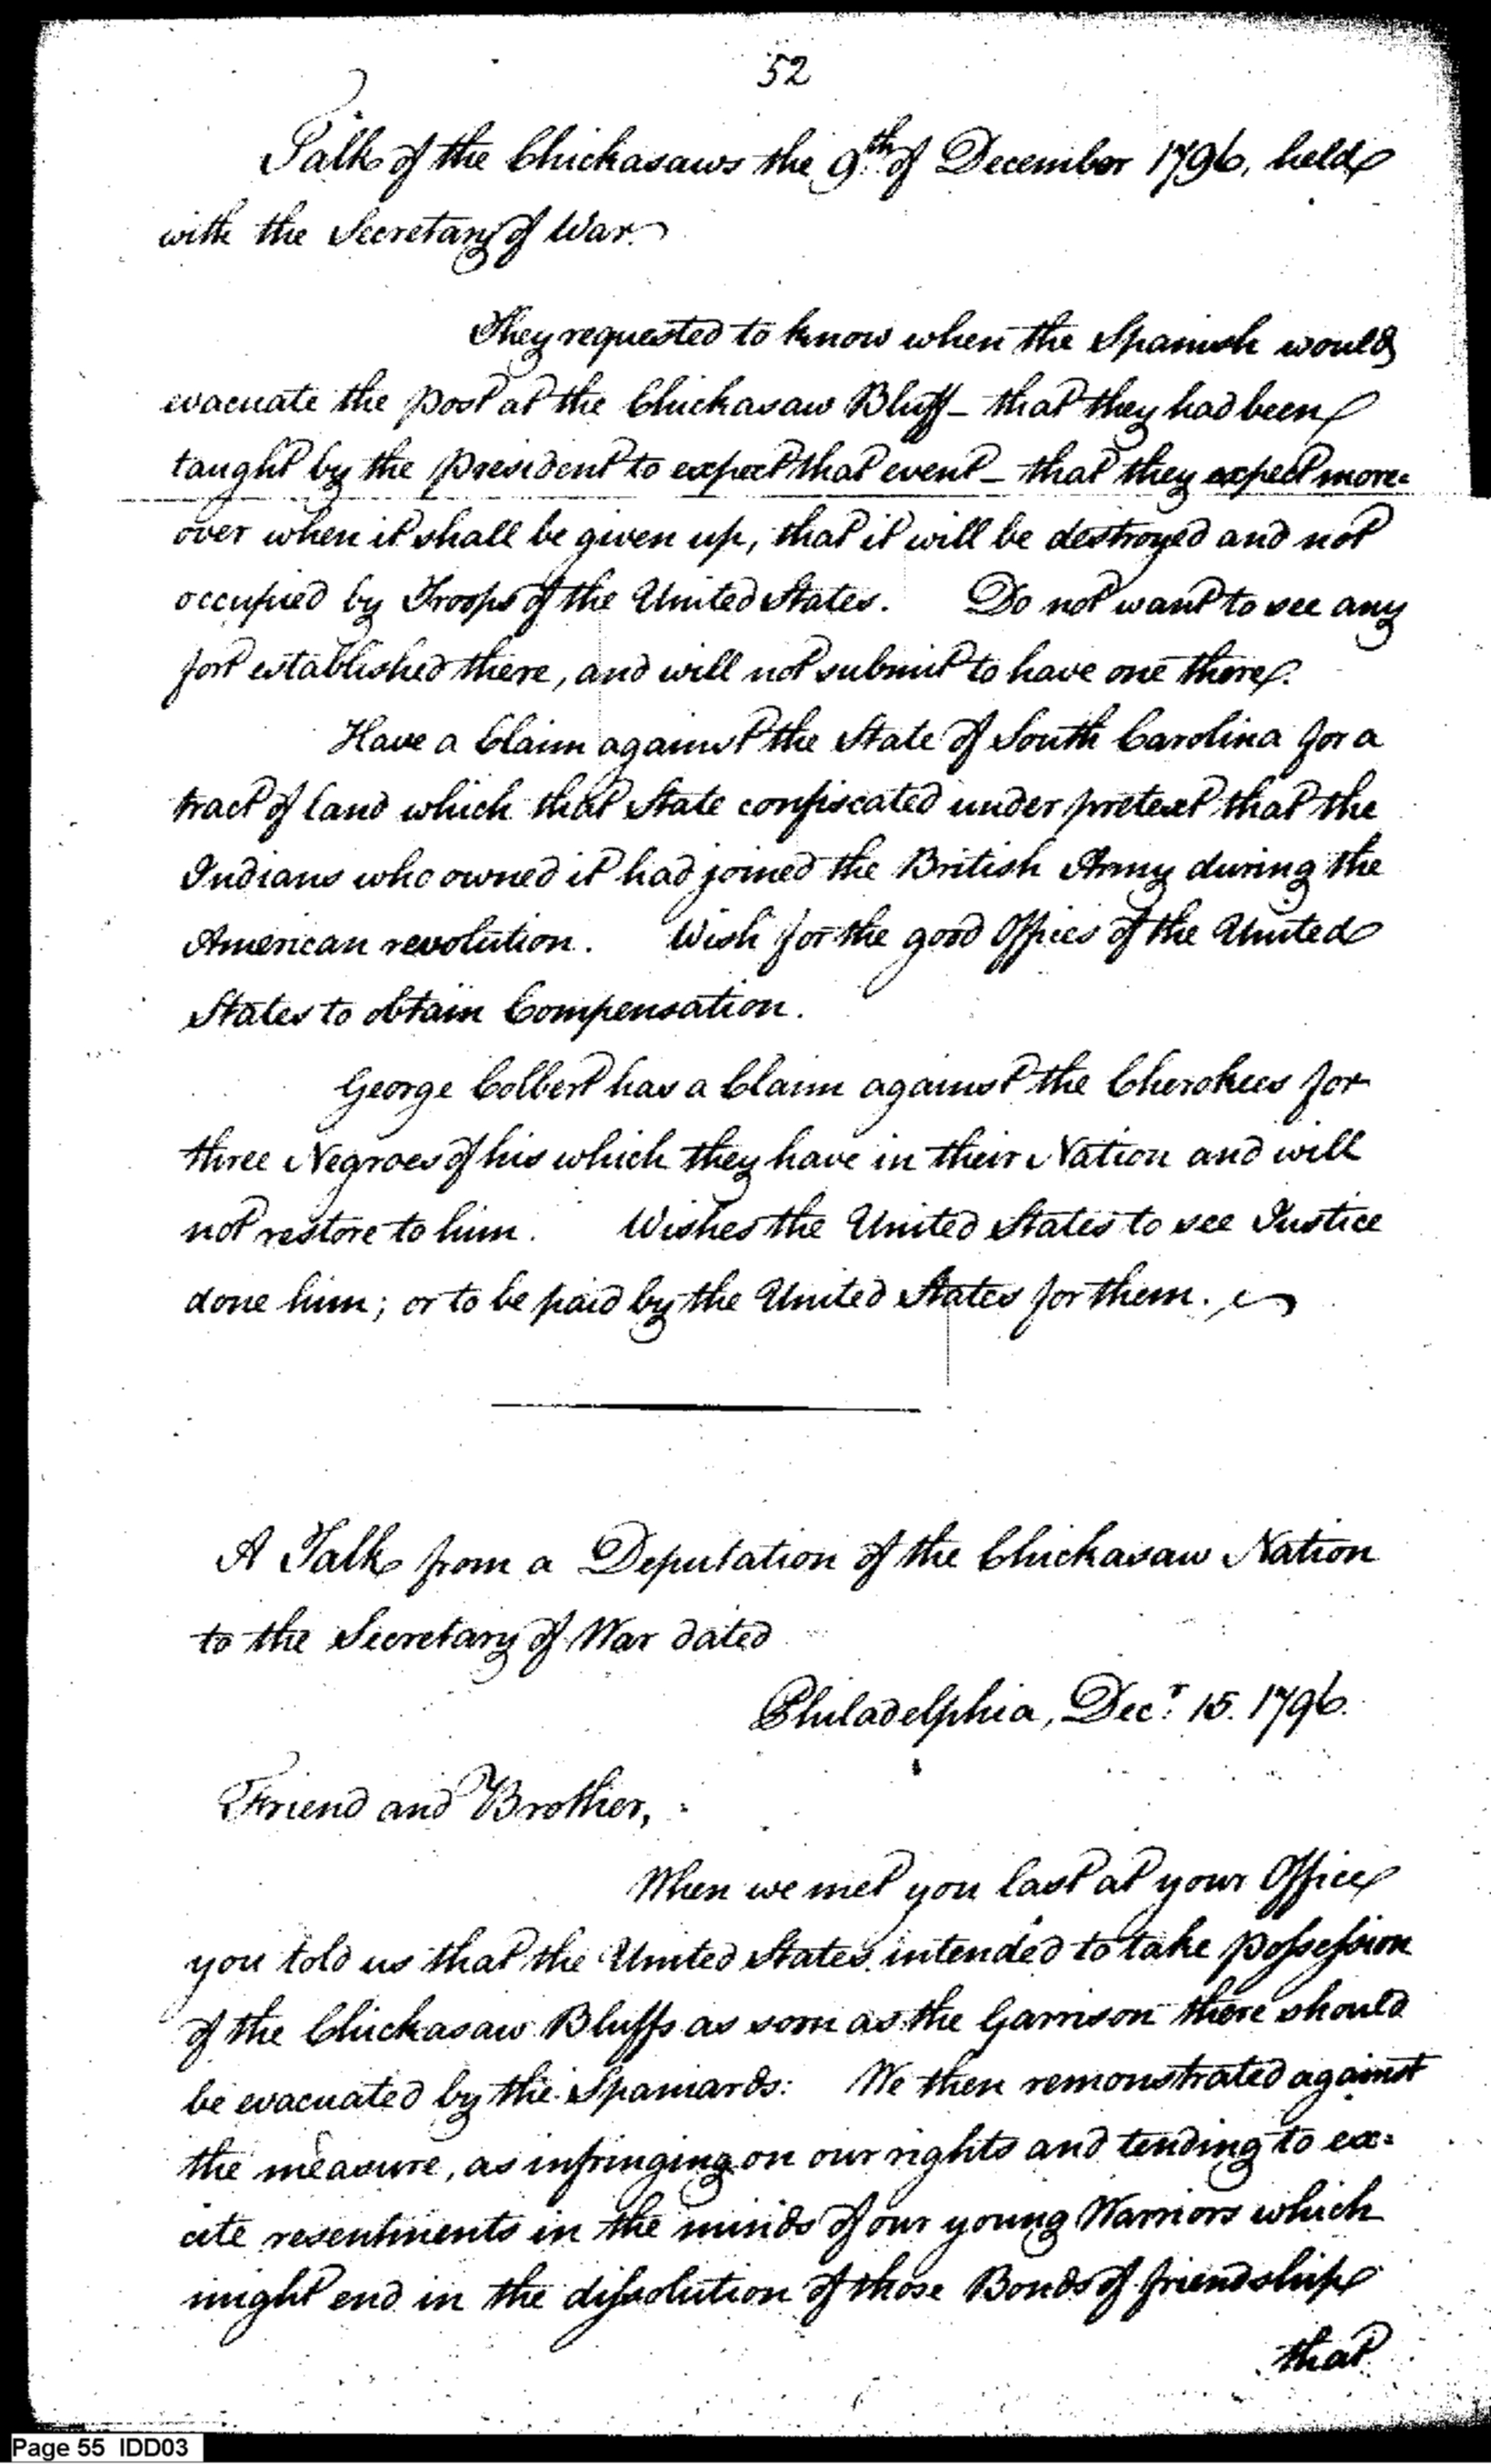 52
Talk of the Chickasaws the 9th of December 1796, held
with the Secretary of War.
They requested to know when the Spanish would
evacuate the post at the Chickasaw Bluff - that they had been
taught by the president to expect that event - that they expect more=
over when it shall be given up, that it will be destroyed and not
occupied by Troops of the United States. Do not want to see any
fort established there, and will not submit to have one there.
Have a Claim against the State of South Carolina for a
tract of land which that State confiscated under pretext that the
Indians who owned it had joined the British Army during the
American revolution. Wish for the good Offices of the United
States to obtain Compensation.
George Colbert has a Claim against the Cherokees for
three Negroes of his which they have in their Nation and will
not restore to him. Wishes the United States to see Justice
done him; or to be paid by the United States for them.
A Talk from a Deputation of the Chickasaw Nation
to the Secretary of War dated
Philadelphia, Decr. 15. 1796.
Friend and Brother,
When we met you last at your Office
you told us that the United States intended to take possession
of the Chickasaw Bluffs as soon as the Garrison there should
be evacuated by the Spaniards: We then remonstrated against
the measure, as infringing on our rights and tending to ex=
cite resentments in the minds of our young Warriors which
might end in the dissolution of those Bonds of friendship
that
Page 55 IDD03